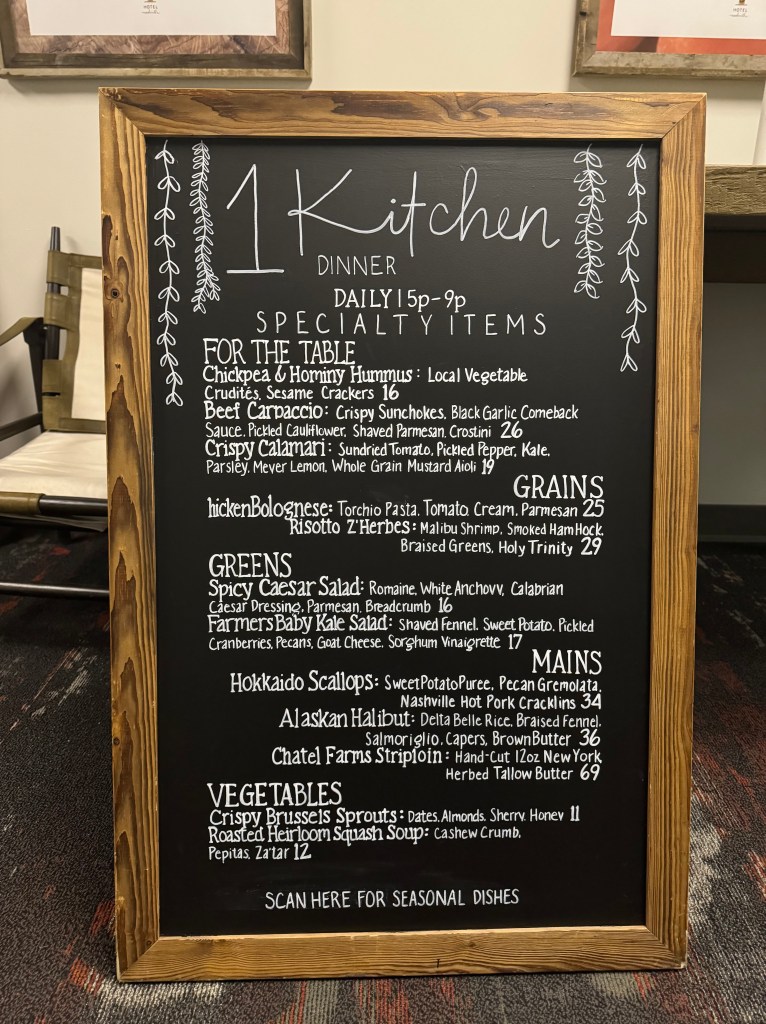 HOTEL
1 Kitchen
DINNER
DAILY | 5p-9p
SPECIALTY ITEMS
FOR THE TABLE
Chickpea & Hominy Hummus: Local Vegetable
Crudités, Sesame Crackers 16
Beef Carpaccio: Crispy Sunchokes, Black Garlic Comeback
Sauce, Pickled Cauliflower, Shaved Parmesan, Crostini 26
Crispy Calamari: Sundried Tomato, Pickled Pepper, Kale,
Parsley, Meyer Lemon, Whole Grain Mustard Aioli 19
GRAINS
hickenBolognese: Torchio Pasta, Tomato, Cream, Parmesan 25
Risotto Z'Herbes: Malibu Shrimp, Smoked Ham Hock,
Braised Greens, Holy Trinity 29
GREENS
Spicy Caesar Salad: Romaine, White Anchovy, Calabrian
Caesar Dressing, Parmesan, Breadcrumb 16
Farmers Baby Kale Salad: Shaved Fennel, Sweet Potato, Pickled
Cranberries, Pecans, Goat Cheese, Sorghum Vinaigrette 17
MAINS
Hokkaido Scallops: Sweet Potato Puree, Pecan Gremolata,
Nashville Hot Pork Cracklins 34
Alaskan Halibut: Delta Belle Rice, Braised Fennel,
Salmoriglio, Capers, Brown Butter 36
Chatel Farms Striploin: Hand-Cut 12oz New York,
Herbed Tallow Butter 69
VEGETABLES
Crispy Brussels Sprouts: Dates, Almonds, Sherry, Honey 11
Roasted Heirloom Squash Soup: Cashew Crumb,
Pepitas, Za'tar 12
SCAN HERE FOR SEASONAL DISHES